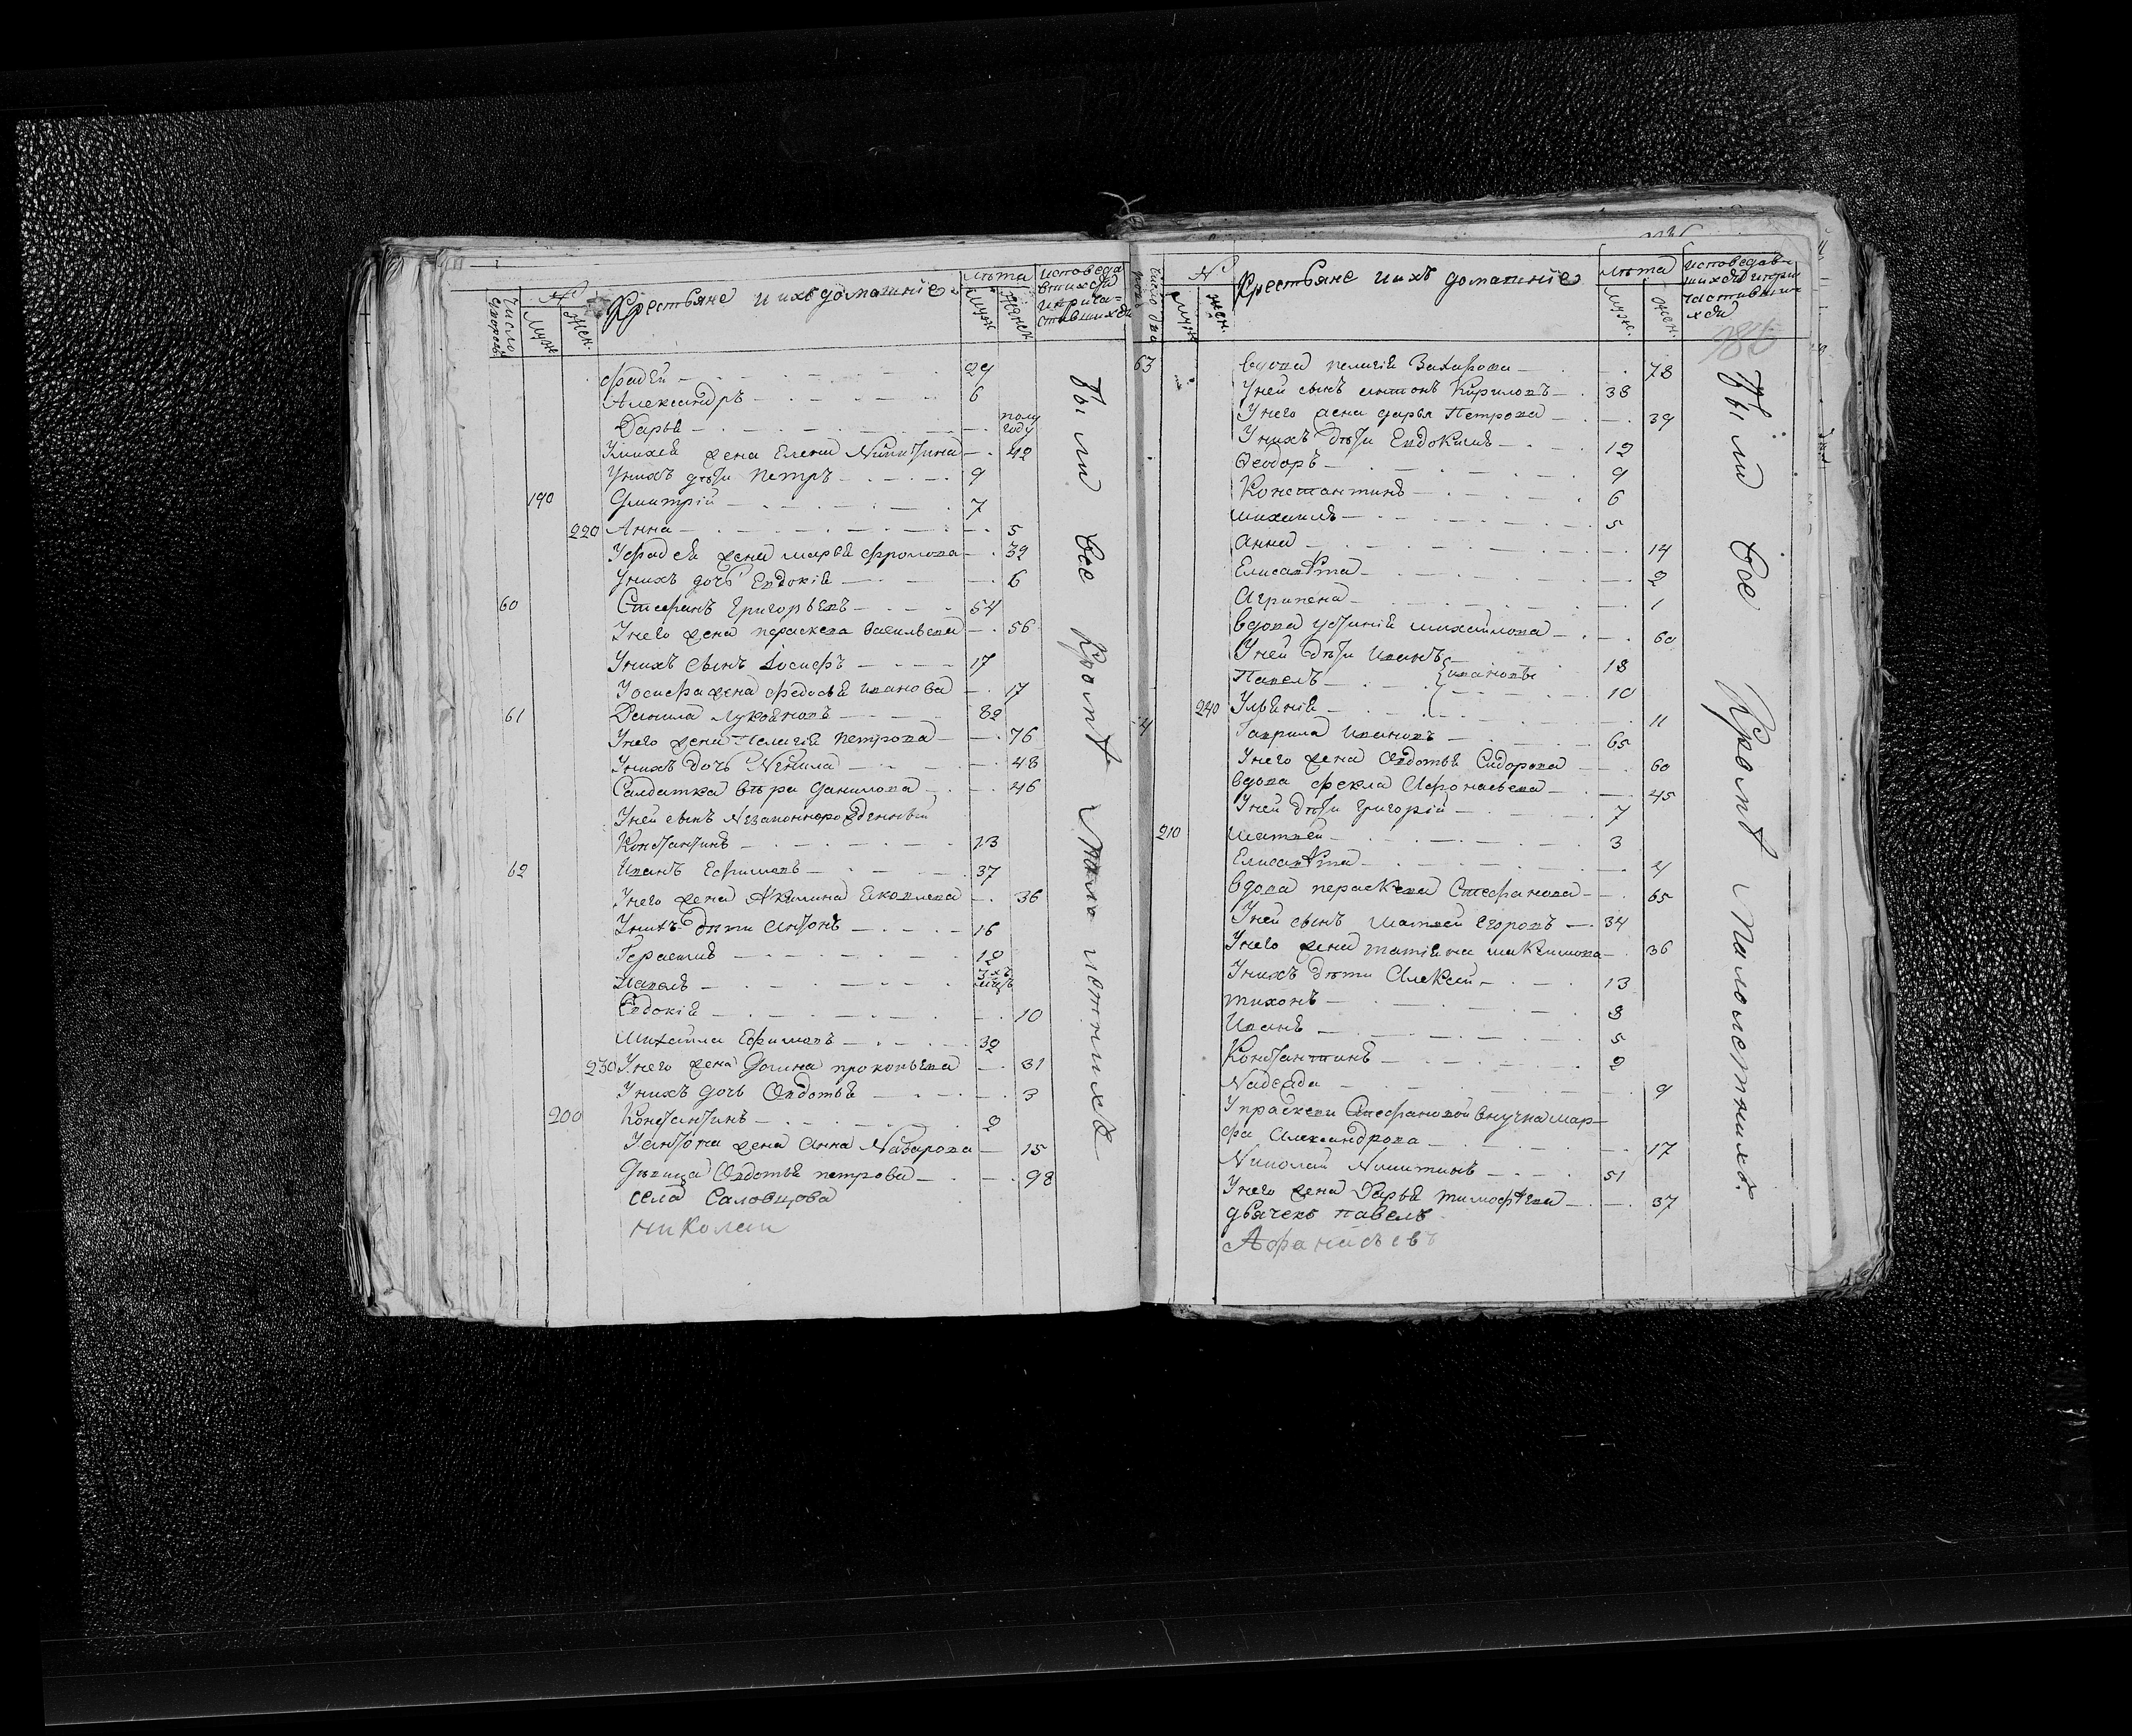 Число дворовъ
№
Муж
Жен.
Крестьяне и ихъ домашніе
Лѣта
Муж
Женск
исповеда
вшихся
и прича=
ставшихся
фадей 29
Александръ 6
Дарья полугоду
жена Елена Никитина 42
У нихъ дѣти Петръ 9
190 Дмитрій 7
220 Анна 5
У фадея жена марья фролова 32
У нихъ дочь Евдокія 6
60 Стефанъ Григорьевъ 54
У него жена параскева васильева 56
У нихъ сынъ Іосифъ 17
У осифа жена федосья иванова 17
61 Данила Лукояновъ 82
У него жена Пелагія Петрова 76
У нихъ дочь Ненила 48
Салдатка вѣра данилова 46
У ней сынъ незаконнорожденный
Константинъ 13
62 Иванъ Ефимовъ 37
У него жена Акилина Яковлева 36
У нихъ дѣти Антонъ 16
Герасимъ 12
Павелъ 3хъ мцъ
Евдокія 10
Михаила Ефимовъ 32
230 У него жена Домна прокопьева 31
У нихъ дочь Овдотья 3
200 Константинъ 2
У антона жена Анна Назарова 15
Дѣвица Овдотья петрова 98
села Саловцова
николаи
Были все Кромѣ Малолетнихъ
Число дво
№
Муж
Жен.
Крестьяне и ихъ домашніе
Лѣта
Муж.
Жен.
исповедав
шихся и при
частивши
хся
63 вдова пелагія Захарова 78
У ней сынъ антонъ Кириловъ 38
У него жена дарья Петрова 39
У нихъ дѣти Евдокимъ 12
Ѳеодоръ 9
Константинъ 6
михаилъ 5
анна 14
Елисавѣта 2
Агрипена 1
вдова устинія михаилова 60
У ней дѣти иванъ 18
Павелъ } ивановы 10
240 Ульянія 11
4 Гаврила ивановъ 65
У него жена Овдотья Сидорова 60
вдова фекла Афонасьева 45
У ней дѣти Григорій 7
210 Матвей 3
Елисавѣта 4
вдова параскева Стефанова 65
У ней сынъ Матвей Егоровъ 34
У него жена татіяна максимова 36
У нихъ дѣти Алексей 13
тихонъ 8
Иванъ 5
Константинъ 2
Надежда 9
У праскеви Стефановой внучка мар
фа Александрова 17
Николай Никитинъ 51
У него жена Дарья тимофѣева 37
дьячекъ павелъ
Афанасьевъ
Были все Кромѣ Малолетнихъ.